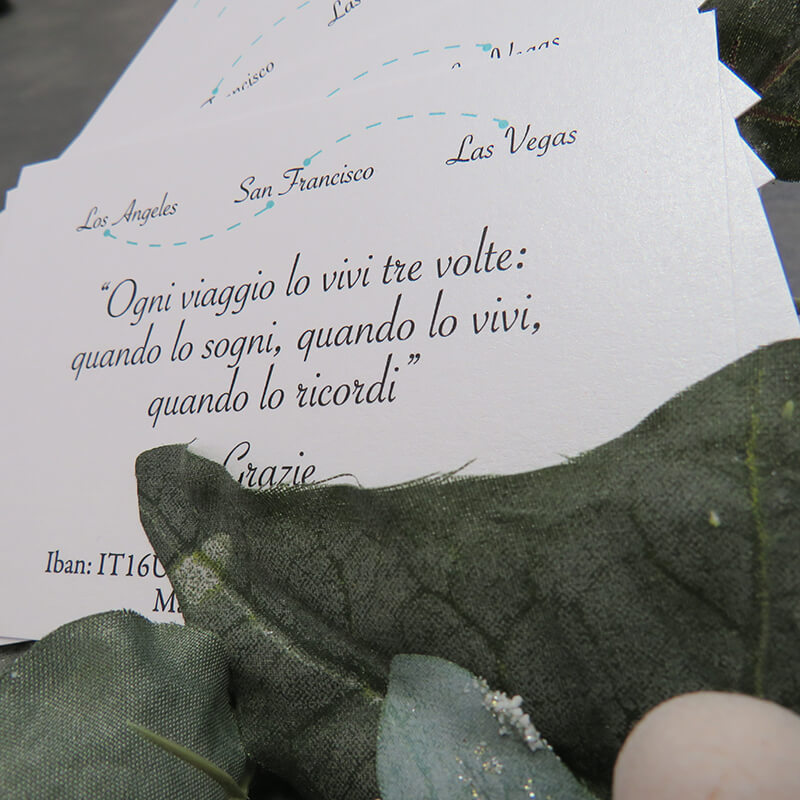 Las
Francisco
Vegas
Los Angeles San Francisco Las Vegas
“Ogni viaggio lo vivi tre volte:
quando lo sogni, quando lo vivi,
quando lo ricordi”
Grazie
Iban: IT16U